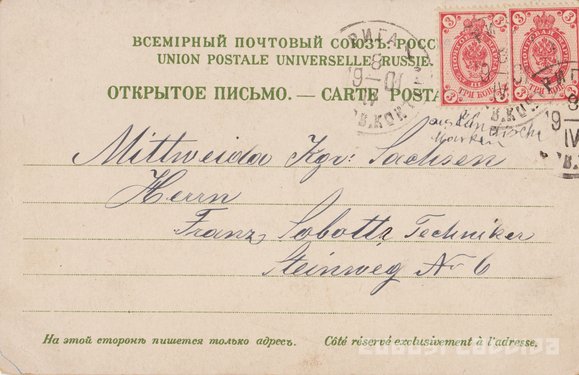 ВСЕМІРНЫЙ ПОЧТОВЫЙ СОЮЗЪ. РОССІ
UNION POSTALE UNIVERSELLE. RUSSIE.
ОТКРЫТОЕ ПИСЬМО. — CARTE POSTA
РИГА
8
IV
3 3
3 3
ТРИ КОП
Mittweida Kgr. Sachsen
Herrn
Franz Sobotta Techniker
Steinweg No 6
На этой сторонѣ пишется только адресъ.
Côté réservé exclusivement à l'adresse.